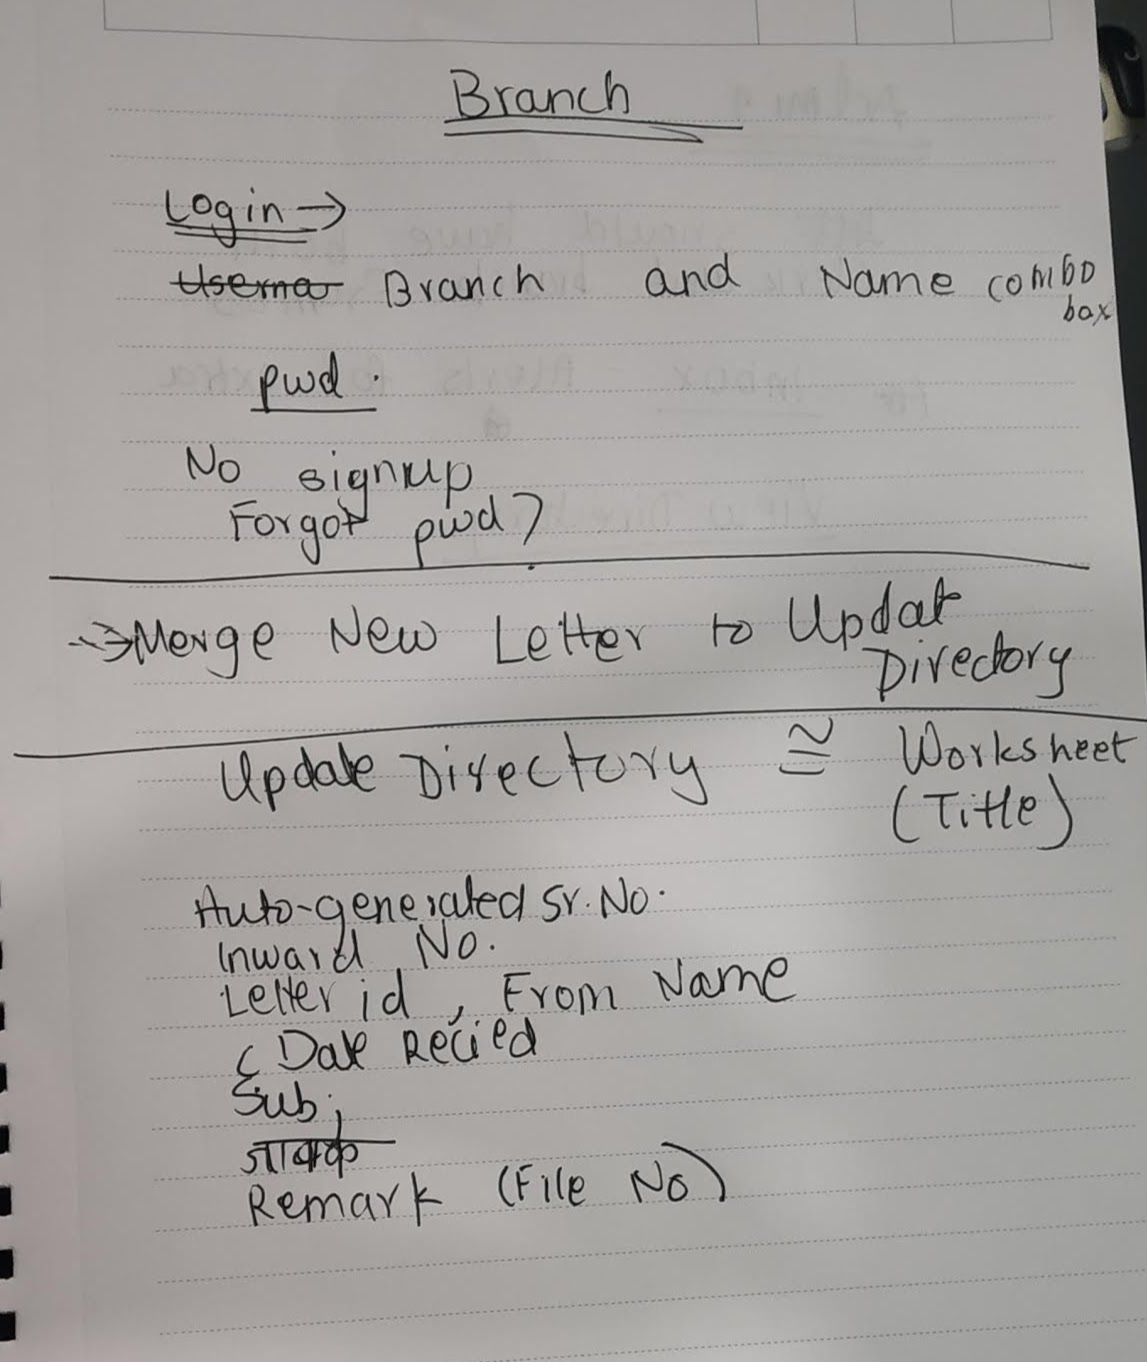 Branch
Login →
Userna Branch and Name combo
box
pwd.
No signup
Forgot pwd?
→ Merge New Letter to Updat
Directory
Update Directory ≅ Worksheet
(Title)
Auto-generated Sr. No.
Inward No.
Letter id, From Name
Date Recied
Sub;
जावक
Remark (File No)